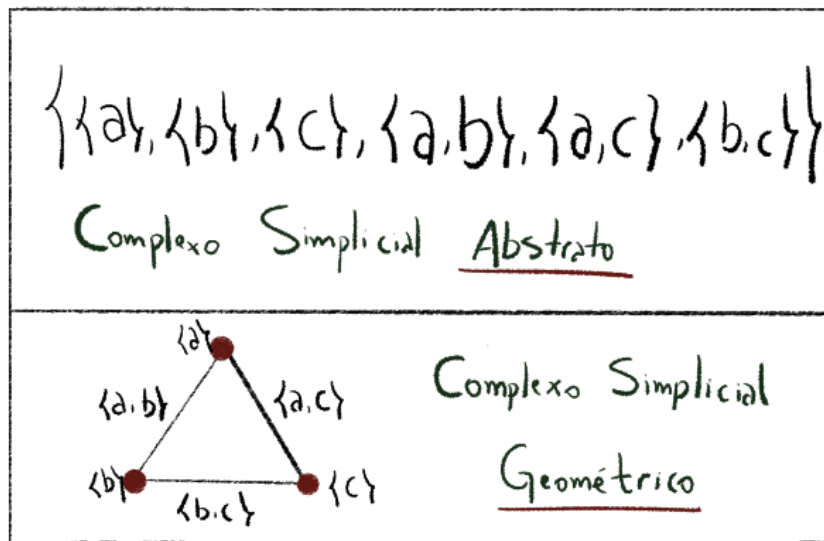 {{a},{b},{c},{a,b},{a,c},{b,c}}
Complexo Simplicial Abstrato
{a}
{a,b}
{a,c}
{b}
{b,c}
{c}
Complexo Simplicial
Geométrico